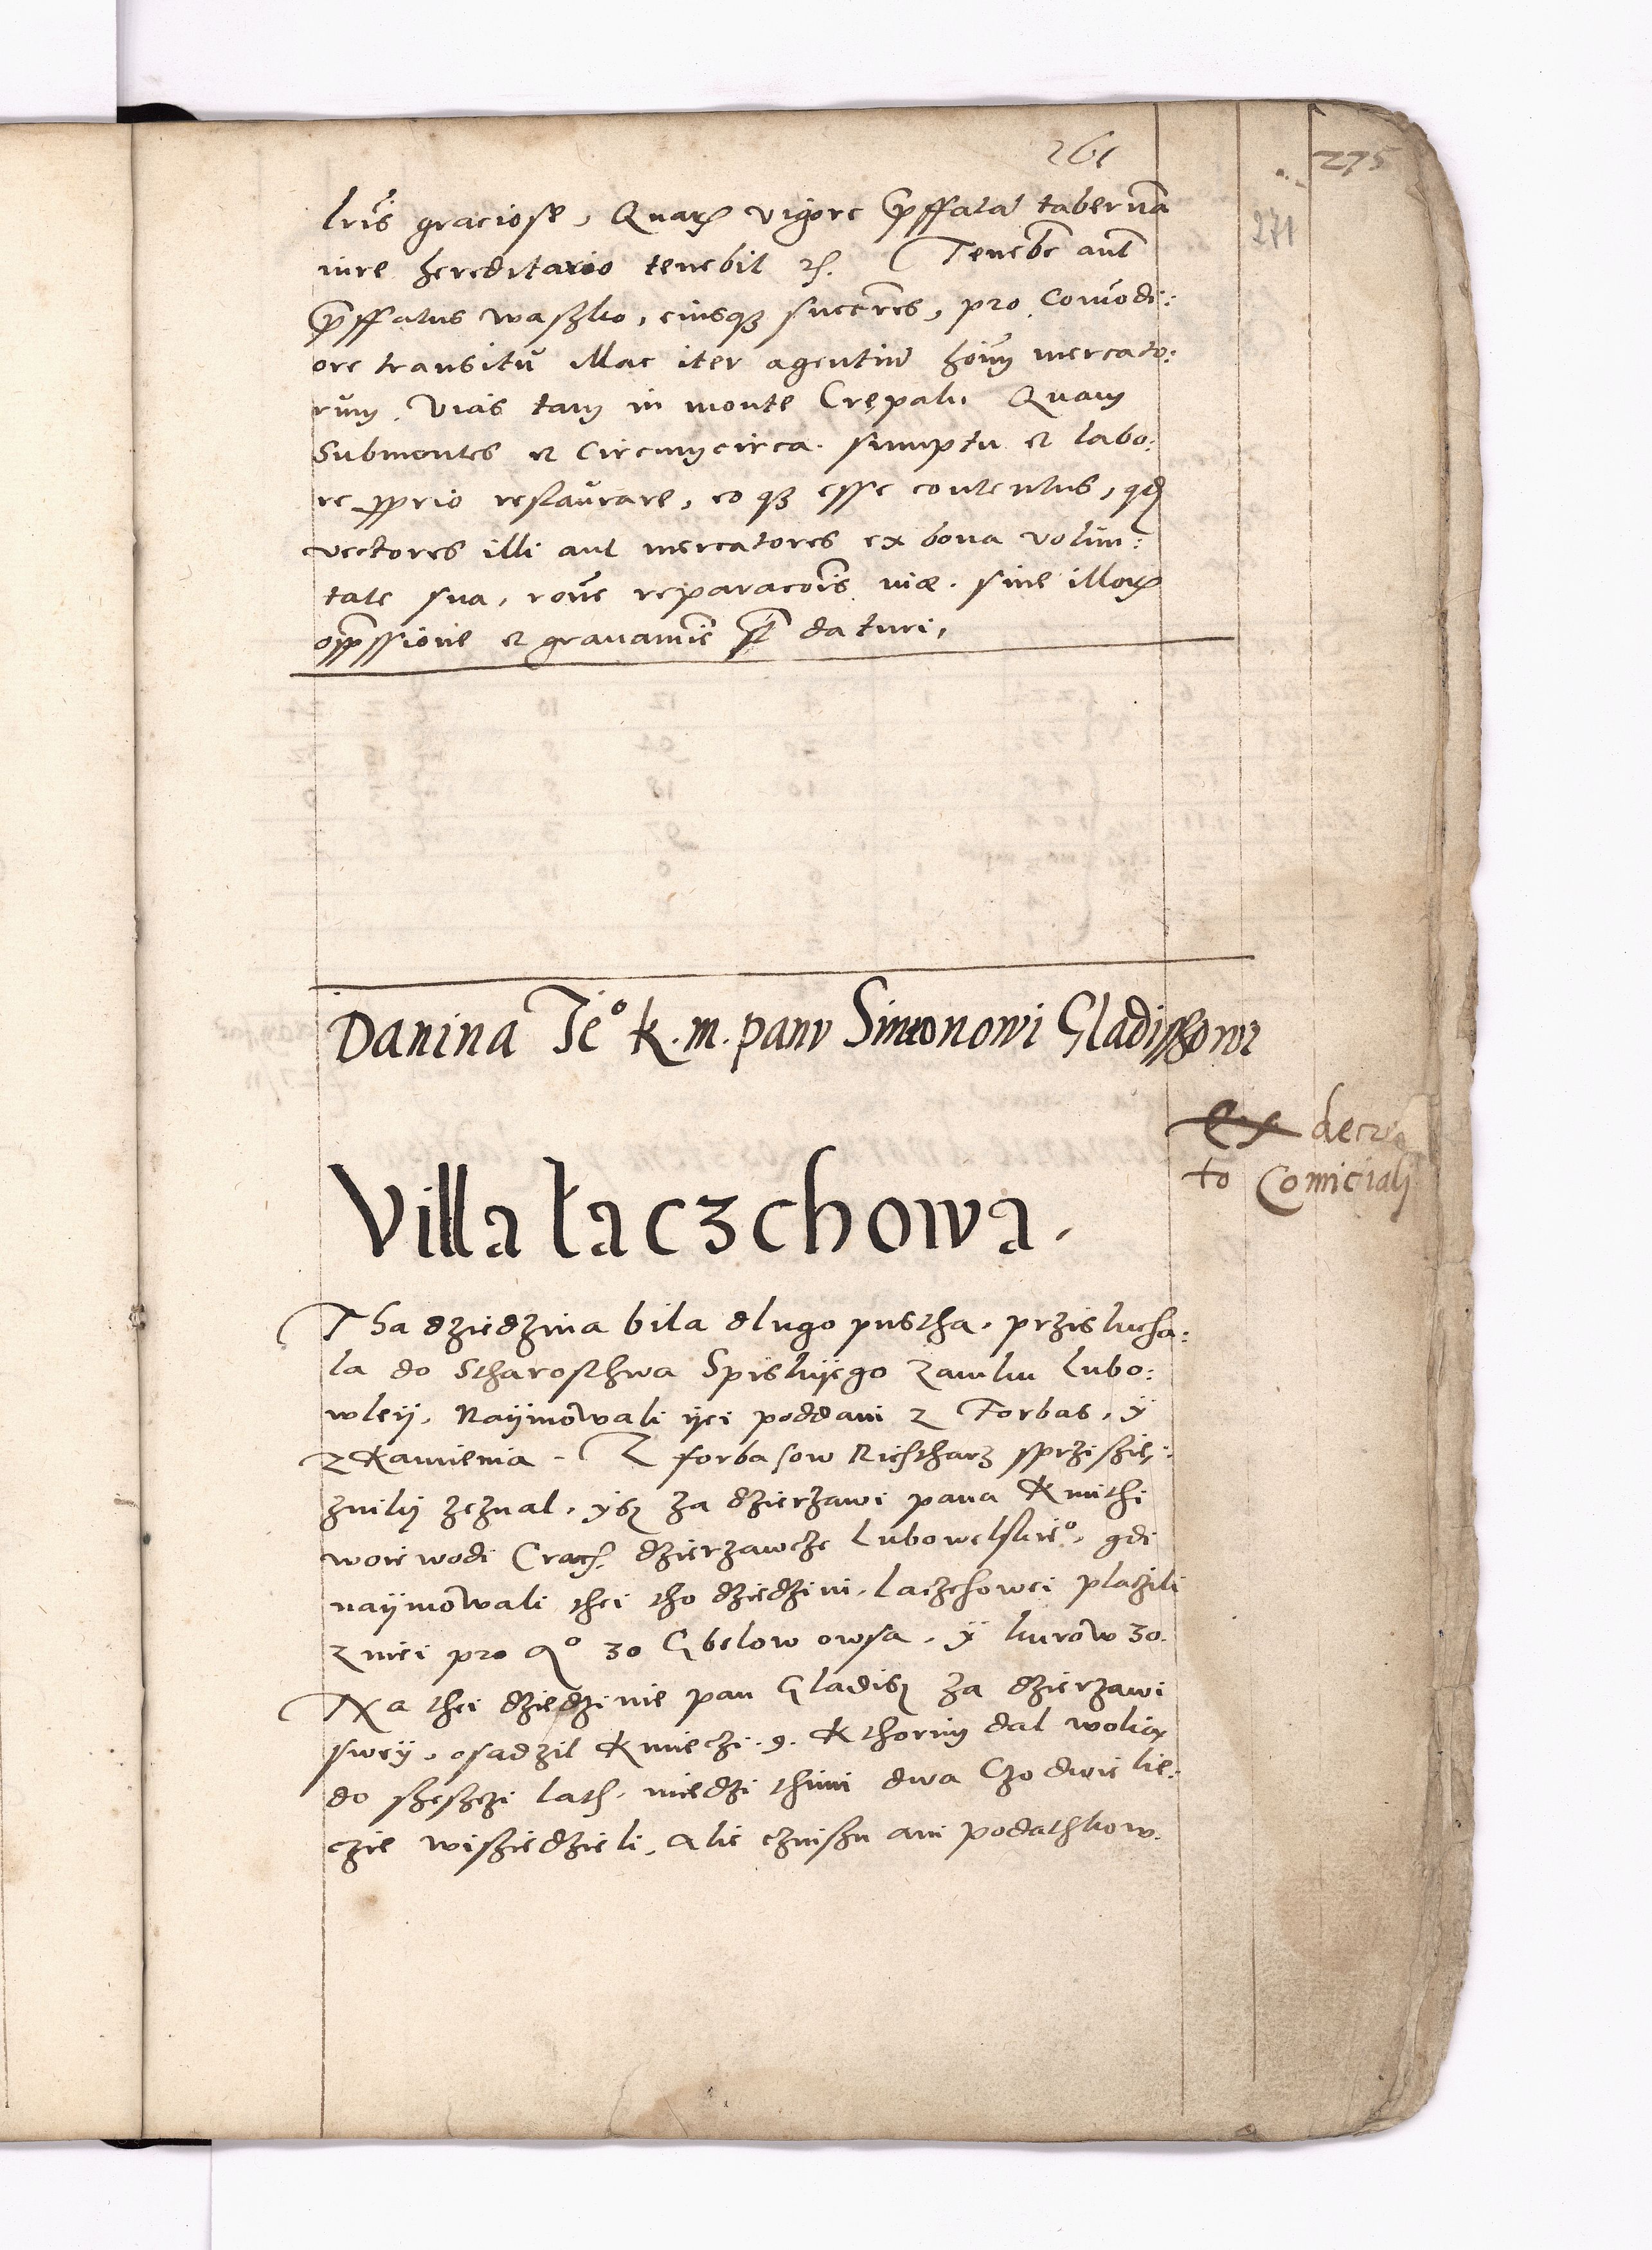 261
275
271
lris graciose, Quarum vigore prffata taberna
iure hereditario tenebit etc. Tenebr aut
prffatus waszko, eiusqz succres, pro Comodi:
ore transitu illac iter agentiu hoim mercato:
rum, vias tam in monte Crepak Quam
Submontes et Circumcirca sumptu et labo:
re pprio restaurare, eo qz esse contentus, qd
vectores illi aut mercatores ex bona volun:
tate sua, rone reparacois viæ sine illorum
opprssione et grauamie st daturi,
Danina Je° k. m. panu Simonowi Gladisszowi
ex decre
to Comiciali
Villa łaczchowa.
Tha dziedzina bila dlugo pustha, przislucha:
la do Stharosthwa Spiskyego zamku Lubo:
wley, Naymowali yei poddani z Forbas, y
z Kamienia. Z forbasow Richtharz sprziszię:
znikij zeznal, ysz za dzierzawi pana Kmithi
woiewodi Crac. dzierzawcze Lubowelskie°, gdi
naymowali thei tho dziedzini, laczchowei placzili
z niei pro Ao 30 Gbelow owsa, y kurow 30.
Na thei dziedzinie pan Gladisz za dzierzawi
swey, osadzil Kmieczi 9. Kthorim dal wolia
do szesczi lath, miedzi thimi dwa Czo dwie lie:
czie wisziedzieli, Alie czinszu ani podathkow.